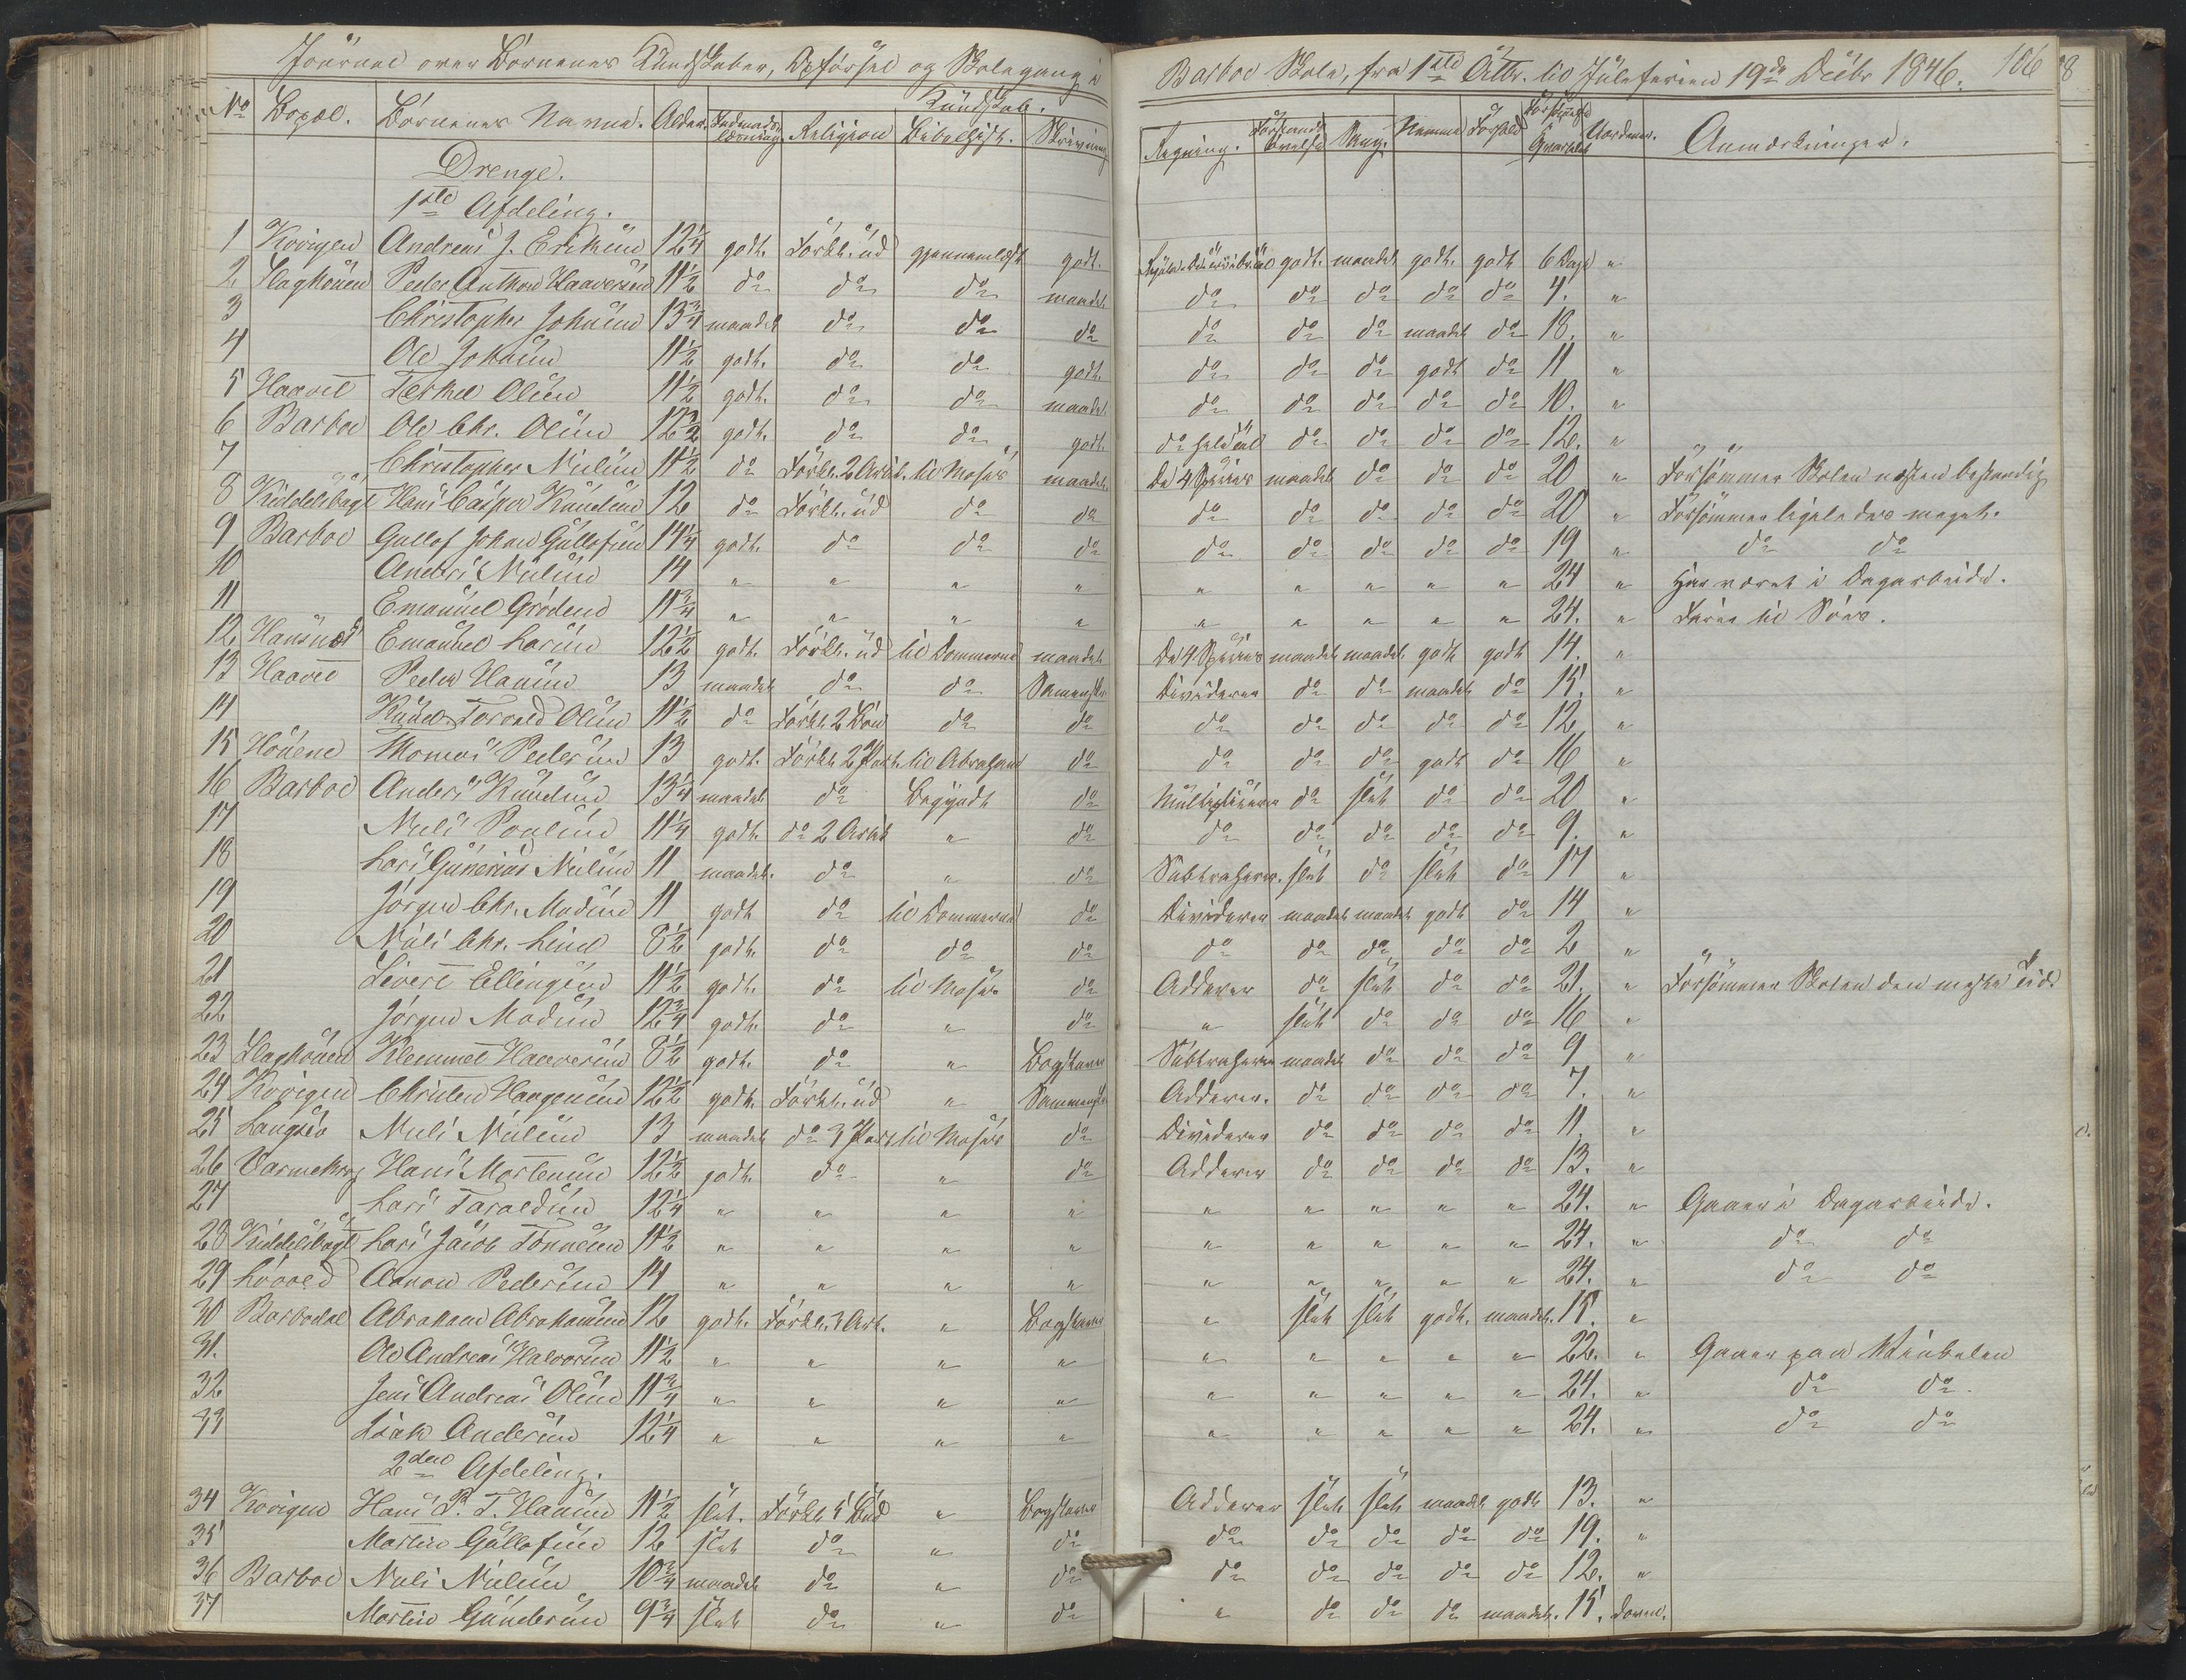 Journal over Börnenes Kundskaber, Opförsel og Skolegang i Barboe Skole, fra 1ste Octbr. til Juleferien 19de Decbr 1846. 106
Kundskab.
No Bopæl. Börnenes Navne. Alder. Indenadslæsning Religion Bibelhist. Skrivning Regning. Forstands Övelse Sang. Nemme Forhold Forsömte Qvartalet Uorden. Anmærkninger.
Drenge.
1ste Afdeling.
1 Kovigen Andreas J. Eriksen 12 1/4 godt. Forkl. ud gjennemlæst godt. Regula de tri i brök godt. maadel. godt. godt 6 Dage "
2 Slaghouen Peder Anthon Haaversen 11 1/2 do do do maadel. do do do do do 4. "
3 Christopher Johnsen 13 3/4 maadel. do do do do do do maadel do 18. "
4 Ole Johnsen 11 1/2 godt. do do godt. do do do godt do 11 "
5 Haavet Terkel Olsen 11 1/2 godt. do do maadel. do do do do do 10. "
6 Barboe Ole Chr. Olsen 12 1/2 godt. do do godt do hele tal do do do do 12. "
7 Christopher Nielsen 11 1/2 do Forkl. 2 Artik. til Moses maadel. De 4 Species maadel. do do do 20 " Forsömmer Skolen næsten bestandig
8 Kiddelsbugt Hans Casper Knudsen 12 do Forkl. ud do do do do do do do 20 " Forsömmer ligeledes meget.
9 Barboe Gullof Johan Gullofsen 14 1/4 godt. do do do do do do do do 19 " do do
10 Anders Nielsen 14 " " " " " " " " " 24 " Har været i Dagarbeide.
11 Emanuel Gröden 11 3/4 " " " " " " " " " 24. " Farer til Söes.
12 Hansnæs Emanuel Larsen 12 1/2 godt. Forkl. ud til Dommerne maadel. De 4 Species maadel. maadel. godt godt 14. "
13 Haavet Peder Hansen 13 maadel. do do Sammenskr Dividerer do do maadel. do 15. "
14 Knud Torvald Olsen 11 1/2 do Forkl. 2 Bön do do do do do do do 12 "
15 Houene Thomas Pedersen 13 godt. Forkl. 2 Part. til Abraham do do do do godt do 16 "
16 Barboe Anders Knudsen 13 1/4 maadel. do Begyndt do Multiplicerer do slet do do 20 "
17 Niels Poulsen 11 1/4 godt. do 2 Artik " do do do do do do 9. "
18 Lars Gunerius Nielsen 11 maadel. do " do Subtraherer. slet do slet do 17 "
19 Jörgen Chr. Madsen 11 godt do til Dommerne do Dividerer maadel. maadel. godt do 14 "
20 Niels Chr. Lind 8 1/2 godt. do do do do do do do do 2 "
21 Sivert Ellingsen 11 1/2 godt. do til Moses do Adderer do slet do do 21. " Forsömmer Skolen den meste Tid.
22 Jörgen Madsen 12 3/4 godt. do " do " slet do do do 16 "
23 Slaghouen Klemmet Haaversen 8 1/2 godt. do " Bogstaver Subtraherer maadel do do do 9 "
24 Kovigen Christen Haagensen 12 1/2 godt. Forkl. ud " Sammenskr Adderer. do do do do 7. "
25 Langsæ Niels Nielsen 13 maadel. do 3 Part. til Moses do Dividerer do do do do 11. "
26 Varmekrog Hans Mortensen 12 1/2 godt. do " do Adderer do do do do 13. "
27 Lars Taraldsen 12 1/4 " " " " " " " " " 24. " Gaaer i Dagarbeide.
28 Kiddelsbugt Lars Jacob Tönnesen 11 1/2 " " " " " " " " " 24. " do do
29 Lövved Aanon Pedersen 14 " " " " " " " " " 24. " do do
30 Barbodal Abraham Abrahamsen 12 godt. Forkl. 3 Art. " Bogstaver " slet slet godt. maadel. 15. "
31. Ole Andreas Halvorsen 11 1/2 " " " " " " " " " 22. " Gaaer paa Winkelen
32 Jens Andreas Olsen 11 3/4 " " " " " " " " " 24. " do do
33 Isak Andersen 12 1/4 " " " " " " " " " 24. " do do
2den Afdeling.
34 Kovigen Hans P. T. Hansen 11 1/2 slet. Forkl. 5 Bud " Bogstaver Adderer slet slet maadel godt 13. "
35 Martin Gullofsen 12 slet do " do do do do do do 19. "
36 Barboe Niels Nielsen 10 3/4 maadel. do " do do do do do do 12. "
37 Martin Gundersen 9 3/4 slet do " do " do do do maadel. 15. doven.